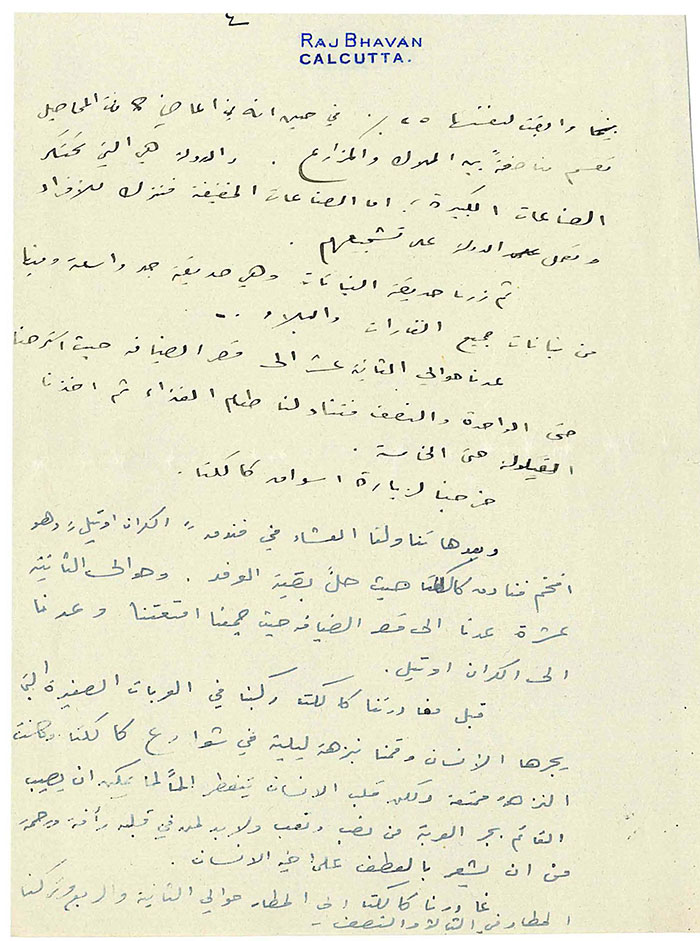 ٤
RAJ BHAVAN
CALCUTTA.
بينما والبقت لنفتها ٢٥ ٪. في حين انه في الماضي كانت المحاصيل
تقسم مناصفةً بين الملاك والمزارع. والدولة هي التي تحتكر
الصناعات الكبيرة، اما الصناعات الخفيفة فتترك للأفراد
وتعمل الدولة على تشجيعهم.
ثم زرنا حديقة النباتات وهي حديقة جد واسعة وفيها
من نباتات جميع القارات والبلاد..
عدنا حوالي الثانية عشر الى قصر الضيافه حيث استرحنا
حتى الواحدة والنصف فتناولنا طعام الغذاء ثم اخذنا
القيلولة حتى الخامسة.
خرجنا لزيارة اسواق كالكتا.
وبعدها تناولنا العشاء في فندق "الكران اوتيل" وهو
افخم فنادق كالكتا حيث حلّ بقية الوفد. وحوالى الثانية
عشرة عدنا الى قصر الضيافه حيث جمعنا امتعتنا وعدنا
الى الكران اوتيل.
قبل مغادرتنا كالكتا ركبنا في العربات الصغيرة التي
يجرها الانسان وقمنا بنزهة ليلية في شوارع كالكتا وكانت
النزهة ممتعة ولكن قلب الانسان يتفطر الماً لما يمكن ان يصيب
القائم بجر العربة من نصب وتعب ولا بد لمن في قلبه رأفة ورحمة
من ان يشعر بالعطف على اخيه الانسان.
غادرنا كالكتا الى المطار حوالي الثانية والربع وتركنا
المطار في الثالثة والنصف.